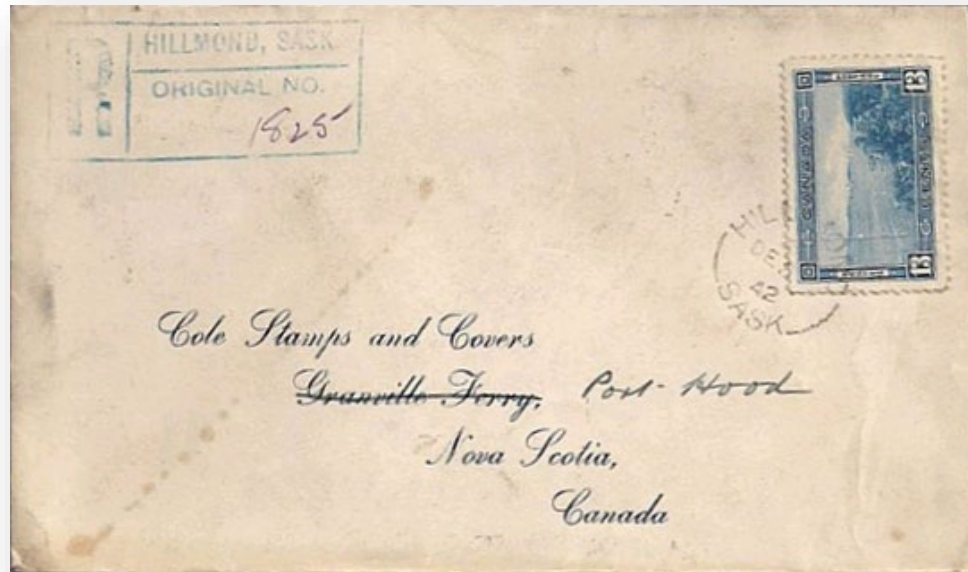 R
HILLMOND, SASK.
ORIGINAL NO.
1825
13
CANADA
CENTS
13
HIL
DE
42
SASK.
Cole Stamps and Covers
Granville Ferry, Port Hood
Nova Scotia,
Canada